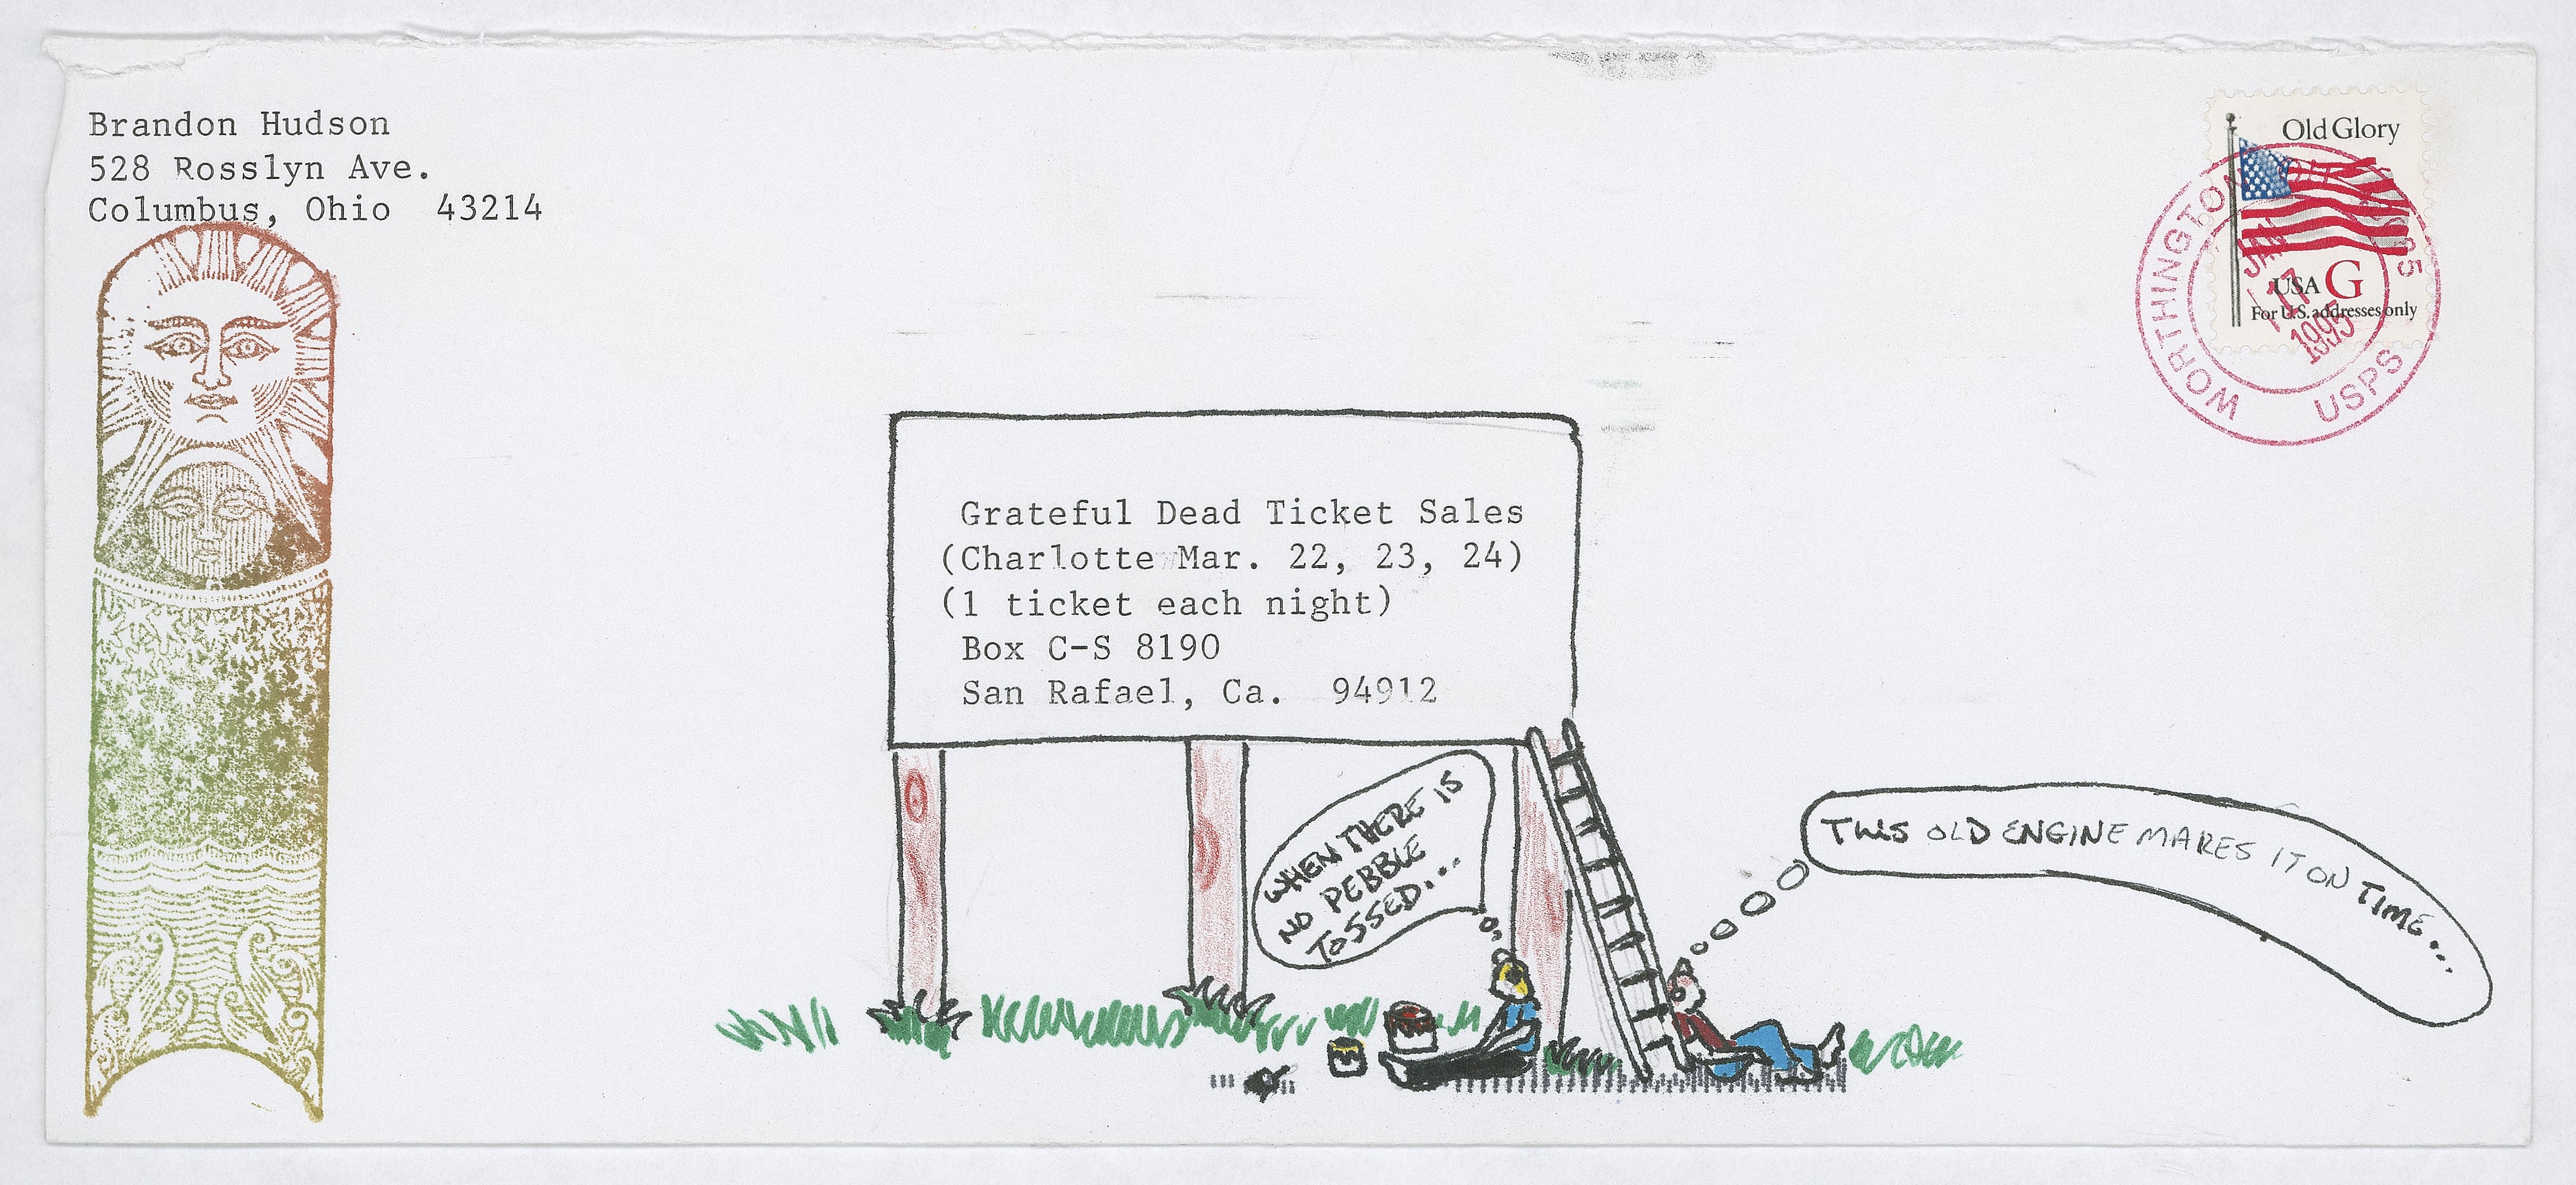 Brandon Hudson
528 Rosslyn Ave.
Columbus, Ohio 43214
Old Glory
USA G
For U.S. addresses only
WORTHINGTON
JAN
17
1995
USPS
Grateful Dead Ticket Sales
(Charlotte Mar. 22, 23, 24)
(1 ticket each night)
Box C-S 8190
San Rafael, Ca. 94912
WHEN THERE IS
NO PEBBLE
TOSSED...
THIS OLD ENGINE MAKES IT ON TIME...